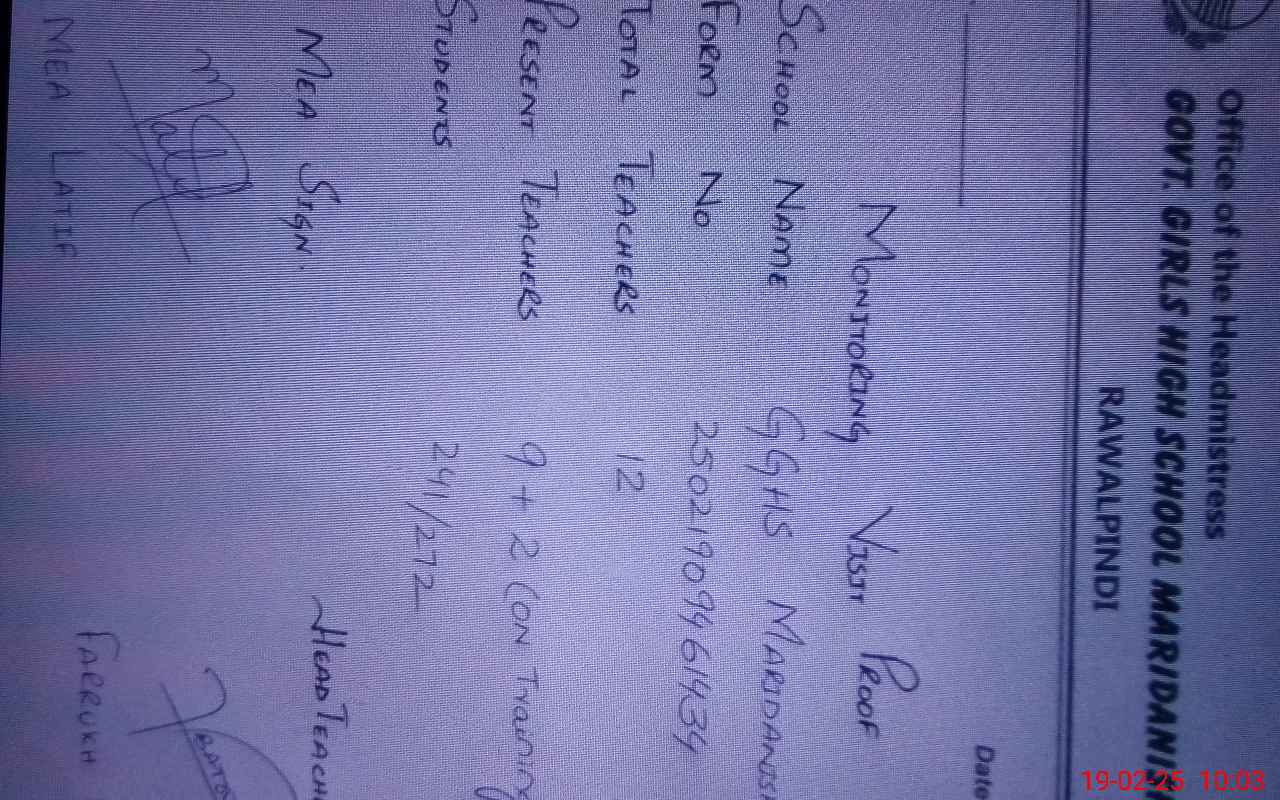 Office of the Headmistress
GOVT. GIRLS HIGH SCHOOL MARIDANI
RAWALPINDI
Date
MONITORING VISIT PROOF
SCHOOL NAME GGHS MARIDANISH
FORM NO 25021909461434
TOTAL TEACHERS 12
PRESENT TEACHERS 9 + 2 (ON Training
STUDENTS 241/272
MEA SIGN. HEAD TEACH
MEA LATIF FARRUKH
19-02-25 10:03